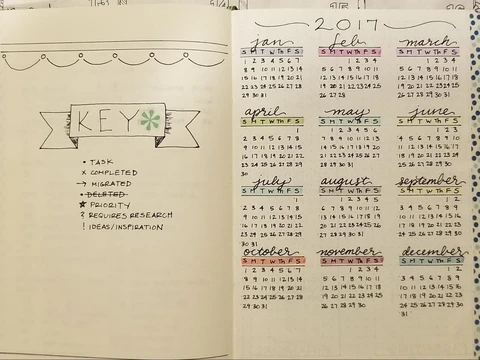 KEY
TASK
COMPLETED
MIGRATED
DELETED
PRIORITY
? REQUIRES RESEARCH
! IDEAS/INSPIRATION
2017
jan
S M T W Th F S
1 2 3 4 5 6 7
8 9 10 11 12 13 14
15 16 17 18 19 20 21
22 23 24 25 26 27 28
29 30 31
feb
S M T W Th F S
1 2 3 4
5 6 7 8 9 10 11
12 13 14 15 16 17 18
19 20 21 22 23 24 25
26 27 28
march
S M T W Th F S
1 2 3 4
5 6 7 8 9 10 11
12 13 14 15 16 17 18
19 20 21 22 23 24 25
26 27 28 29 30 31
april
S M T W Th F S
1
2 3 4 5 6 7 8
9 10 11 12 13 14 15
16 17 18 19 20 21 22
23 24 25 26 27 28 29
30
may
S M T W Th F S
1 2 3 4 5 6
7 8 9 10 11 12 13
14 15 16 17 18 19 20
21 22 23 24 25 26 27
28 29 30 31
june
S M T W Th F S
1 2 3
4 5 6 7 8 9 10
11 12 13 14 15 16 17
18 19 20 21 22 23 24
25 26 27 28 29 30
july
S M T W Th F S
1
2 3 4 5 6 7 8
9 10 11 12 13 14 15
16 17 18 19 20 21 22
23 24 25 26 27 28 29
30 31
august
S M T W Th F S
1 2 3 4 5
6 7 8 9 10 11 12
13 14 15 16 17 18 19
20 21 22 23 24 25 26
27 28 29 30 31
september
S M T W Th F S
1 2
3 4 5 6 7 8 9
10 11 12 13 14 15 16
17 18 19 20 21 22 23
24 25 26 27 28 29 30
october
S M T W Th F S
1 2 3 4 5 6 7
8 9 10 11 12 13 14
15 16 17 18 19 20 21
22 23 24 25 26 27 28
29 30 31
november
S M T W Th F S
1 2 3 4
5 6 7 8 9 10 11
12 13 14 15 16 17 18
19 20 21 22 23 24 25
26 27 28 29 30
december
S M T W Th F S
1 2
3 4 5 6 7 8 9
10 11 12 13 14 15 16
17 18 19 20 21 22 23
24 25 26 27 28 29 30
31